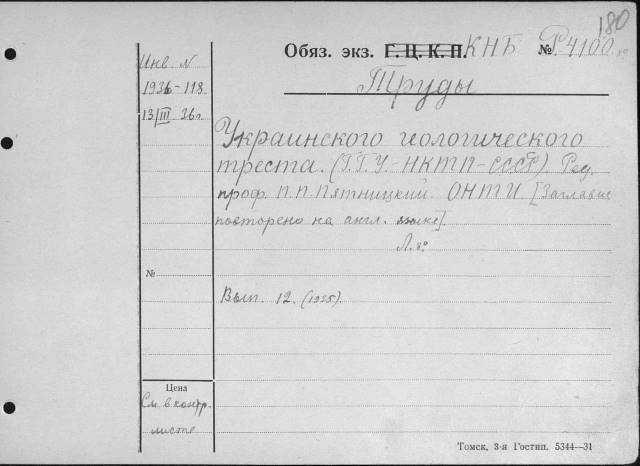 180
Обяз. экз. Г. Ц. К. П. КНБ № Р-4100
Инв. N
1936-118.
13/III 36г.
Труды
Украинского геологического
треста. (Г.Г.У.-НКТП-СССР). Ред.
проф. П.П. Пятницкий. ОНТИ. [Заглавие
повторено на англ. языке].
Л. 8°
№
Вып. 12. (1935).
Цена
См. в контр.
листе
Томск, 3-я Гостип. 5344—31